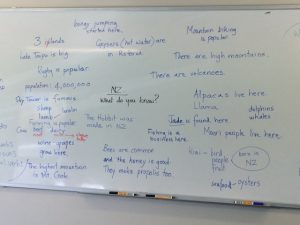 bungy jumping
started here.
3 islands
Geysers (hot water) are
in Rotorua
Mountain biking
is popular
Lake Taupo is big
There are high mountains.
Rugby is popular
There are volcanoes.
population: 4,000,000
NZ
What do you know?
Sky Tower is famous
Alpacas live here.
Llama
dolphins
whales
sheep
lamb
Farming is famous
The Hobbit was
made in NZ
Jade is found here
Cow beef dairy
Farming is a
business here.
Maori people live here.
wine - grapes
grow here
Bees are common
and the honey is good
They make propolis too.
kiwi - bird
people
fruit
born in
NZ
The highest mountain
is Mt. Cook
seafood - oysters